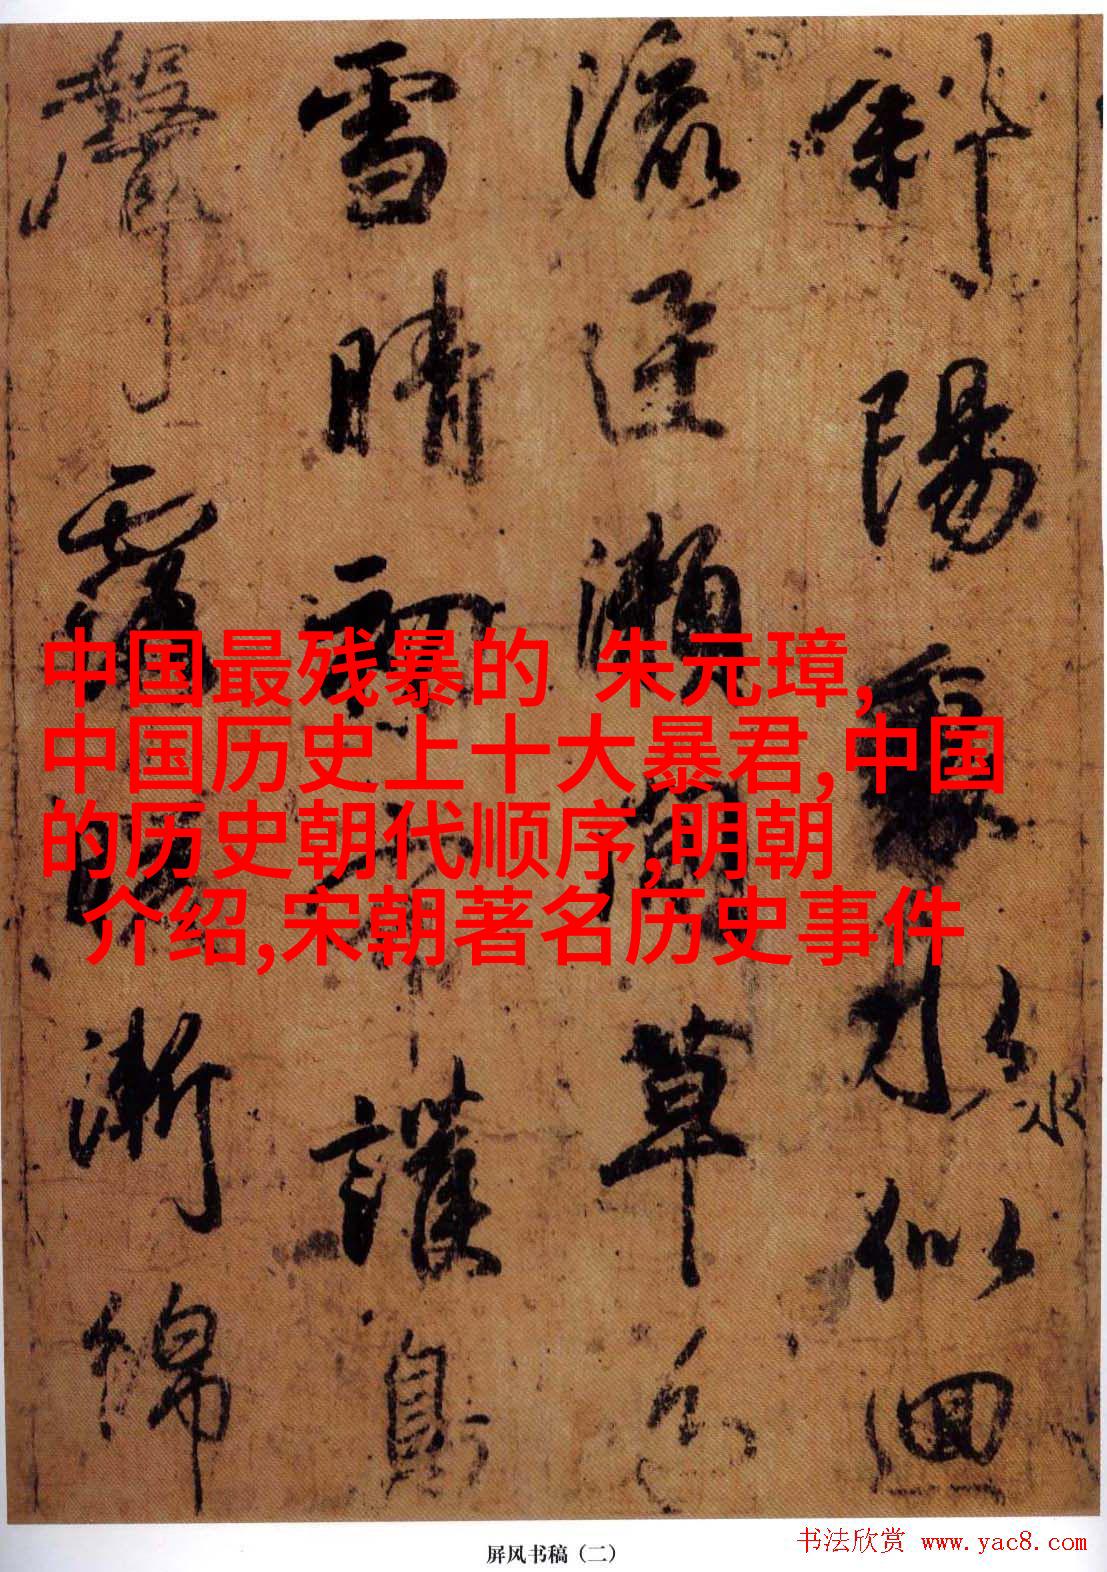 斜陽水似回
流迳瀬草色
雪晴初護鳥
聲漸綿
中国最残暴的 朱元璋,
中国历史上十大暴君,中国
的历史朝代顺序,明朝
介绍,宋朝著名历史事件
屏风书稿（二）
书法欣赏 www.yac8.com